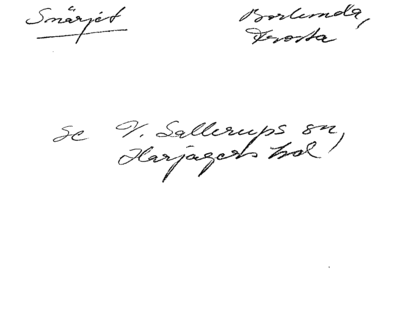 Snärjet
Borlunda,
Frosta
Se V. Sallerups sn,
Harjagers hd